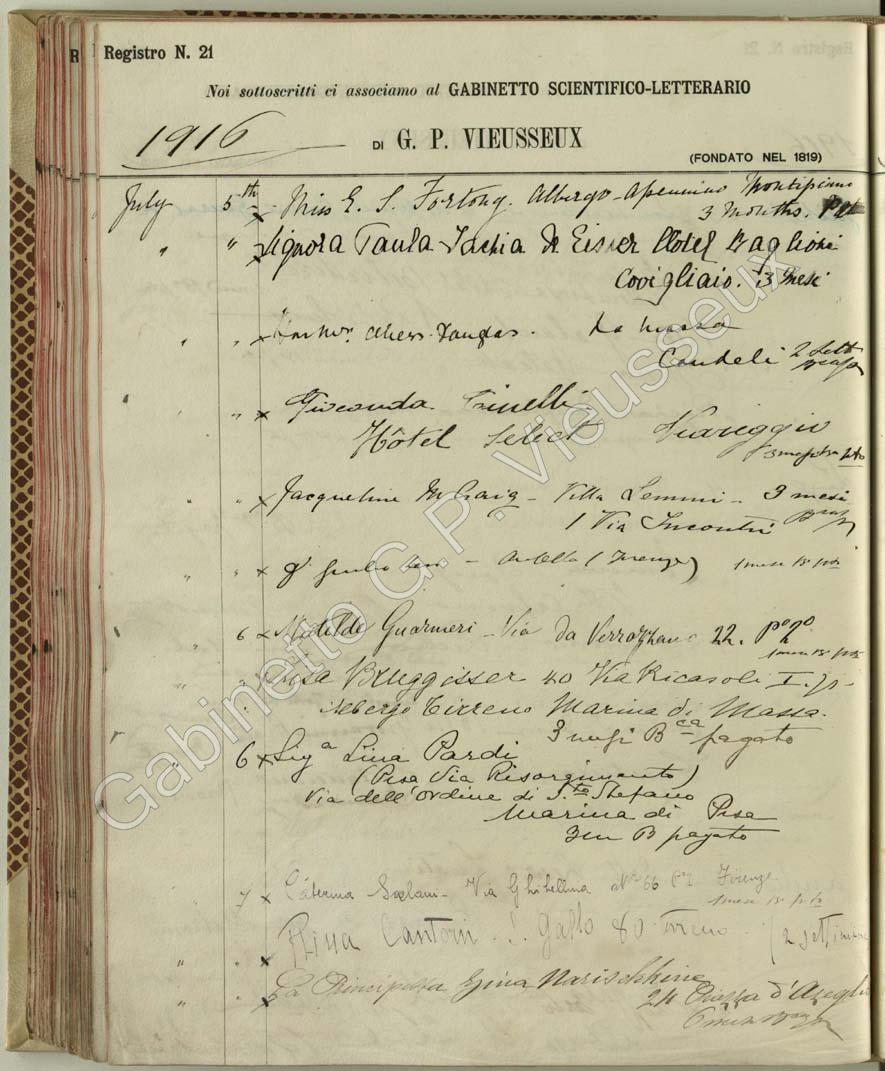 Registro N. 21
Noi sottoscritti ci associamo al GABINETTO SCIENTIFICO-LETTERARIO
1916
DI G. P. VIEUSSEUX
(FONDATO NEL 1819)
July 5th x Miss E. S. Albergo Apennino Montepiano
3 Months.
" " x Signora Paula de Eisner Hotel Baglioni
Covigliaio. 3 mesi
" " x La Massa
Candeli 2 Sett
" x Gioconda Cinelli
Hôtel Select Viareggio
" x Jacqueline McCraig - Villa Lemmi - 3 mesi
1 Via Incontri
" " x Antella (Firenze) 1 mese
" 6 x Matilde Guarnieri - Via da Verrazzano 22. po 2o
1 mese
" " x Lisa Brüggisser 40 Via Ricasoli I. p.
" Albergo Tirreno Marina di Massa.
3 mesi Bca pagato
" 6 x Siga Lina Pardi
(Pisa Via Risorgimento)
Via dell'Ordine di S.to Stefano
Marina di Pisa
3 m B pagato
7 x Caterina - Via Ghibellina No 66 Firenze
1 mese
" " x Cantoni Gallo 80 terreno - (2 settimane
" " x La Principessa Narischkine
24 Piazza d'Azeglio
Gabinetto G.P. Vieusseux